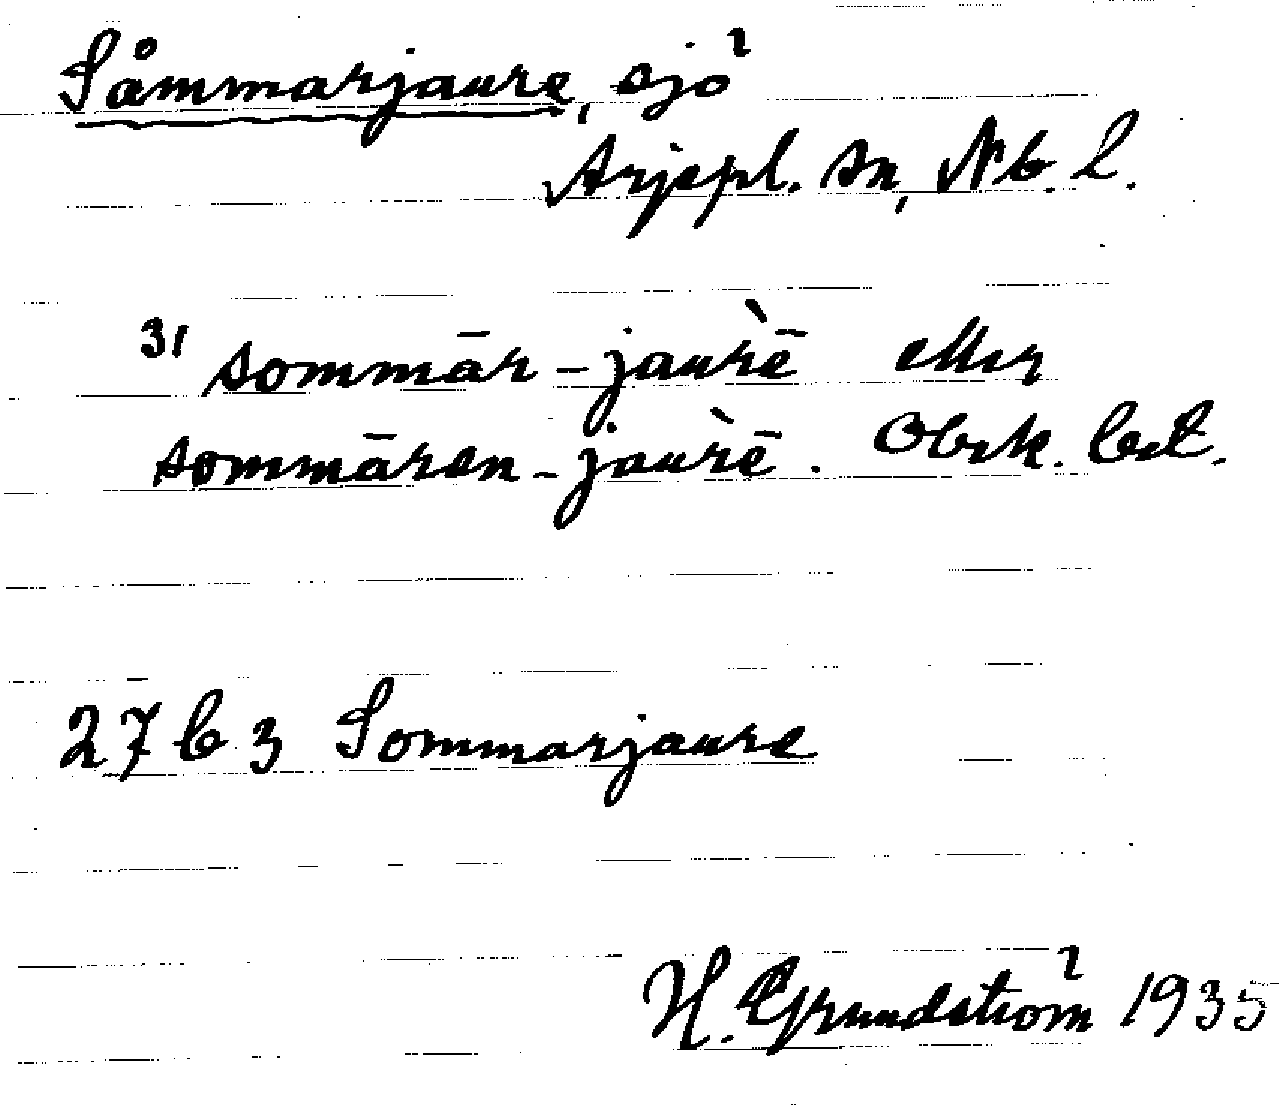 Såmmarjaure, sjö
Arjepl. sn, Nb. l.
31 sommār-jaùrē eller
sommāren-jaùrē. Obek. bet.
27 b 3 Sommarjaure
H. Grundström 1935